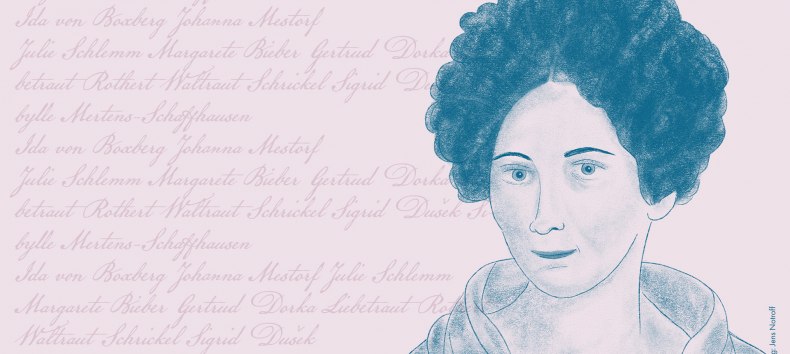 Ida von Boxberg Johanna Mestorf
Julie Schlemm Margarete Bieber Gertrud Dorka
betraut Rothert Waltraut Schrickel Sigrid Du
bylle Mertens-Schaffhausen
Ida von Boxberg Johanna Mestorf
Julie Schlemm Margarete Bieber Gertrud Dorka
betraut Rothert Waltraut Schrickel Sigrid Dušek Si
bylle Mertens-Schaffhausen
Ida von Boxberg Johanna Mestorf Julie Schlemm
Margarete Bieber Gertrud Dorka Liebetraut Rot
Waltraut Schrickel Sigrid Dušek
g: Jens Notroff